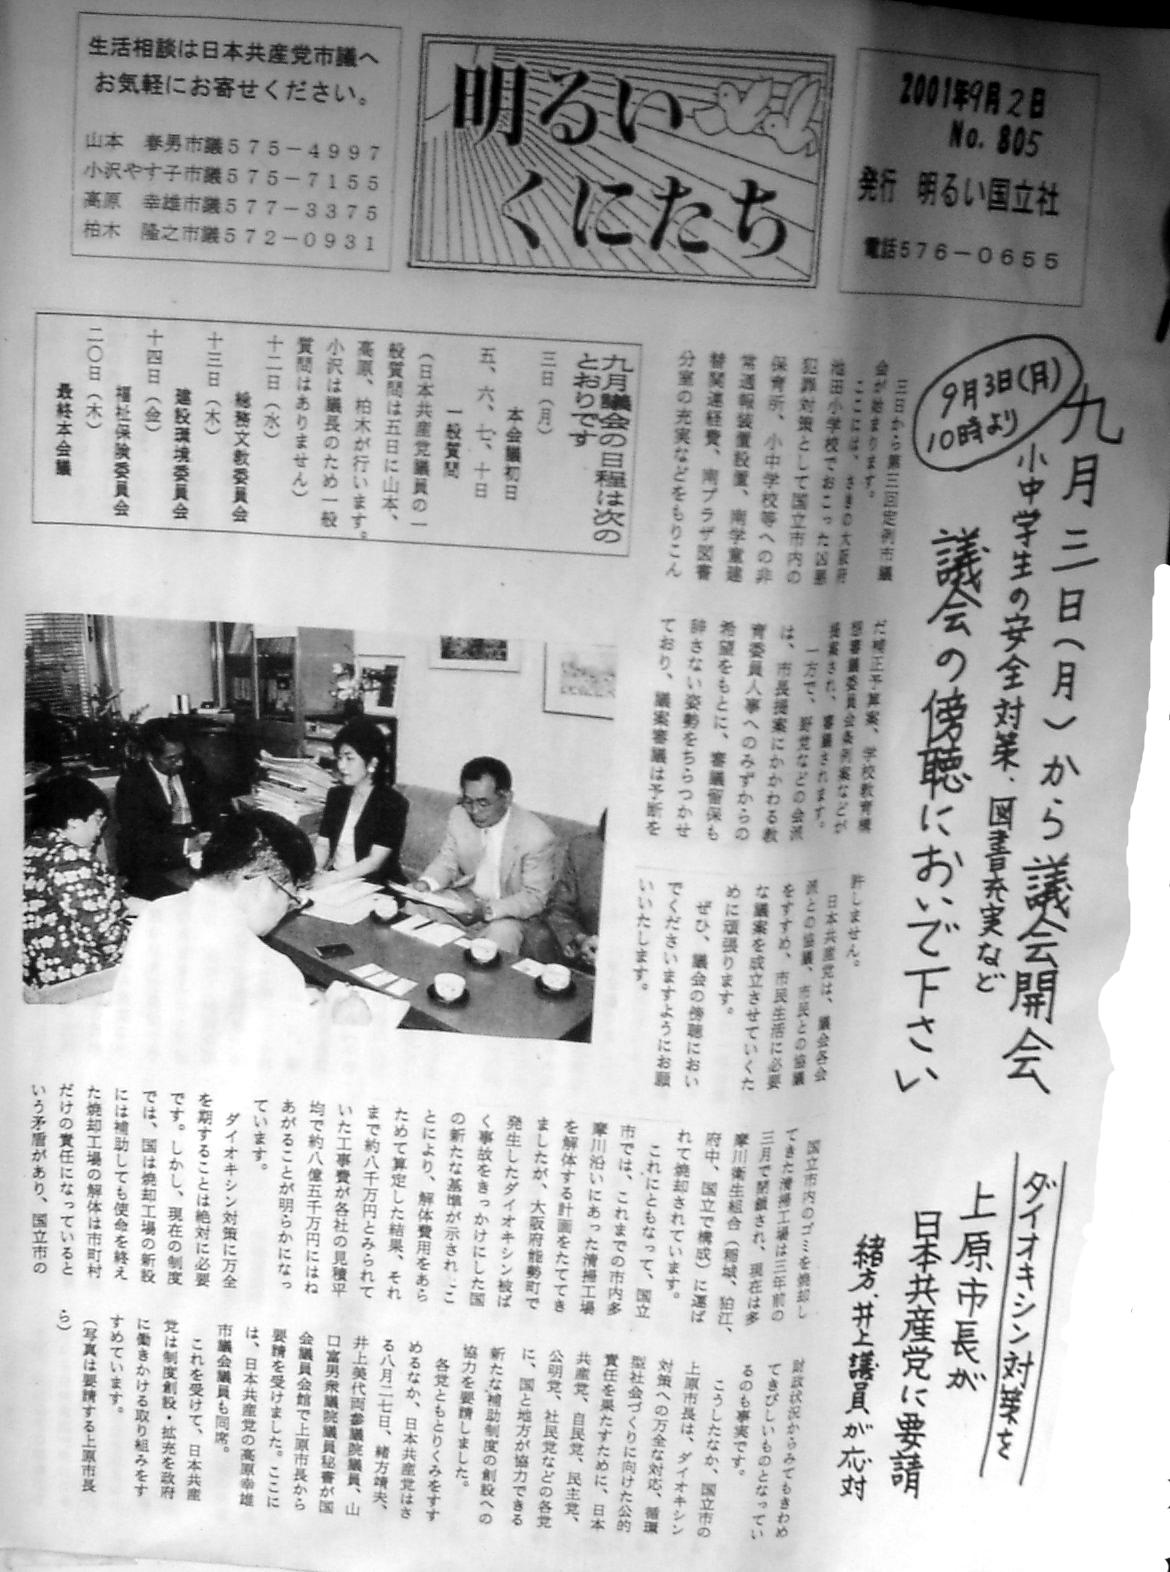 生活相談は日本共産党市議へ
お気軽にお寄せください。
山本　春男市議575－4997
小沢やす子市議575－7155
高原　幸雄市議577－3375
柏木　隆之市議572－0931
明るい
くにたち
2001年9月2日
No.805
発行　明るい国立社
電話576－0655
9月3日(月)
10時より
九月三日(月)から議会開会
小中学生の安全対策、図書充実など
議会の傍聴においで下さい
三日から第三回定例市議
会が始まります。
ここには、さきの大阪府
池田小学校でおこった凶悪
犯罪対策として国立市内の
保育所、小中学校等への非
常通報装置設置、南学童建
替関連経費、南プラザ図書
分室の充実などをもりこん
だ補正予算案、学校教育構
想審議委員会条例案などが
提案され、審議されます。
一方で、野党などの会派
は、市長提案にかかわる教
育委員人事へのみずからの
希望をもとに、審議留保も
辞さない姿勢をちらつかせ
ており、議案審議は予断を
許しません。
日本共産党は、議会各会
派との協議、市民との協議
をすすめ、市民生活に必要
な議案を成立させていくた
めに頑張ります。
ぜひ、議会の傍聴におい
でくださいますようにお願
いいたします。
九月議会の日程は次の
とおりです
三日（月）
本会議初日
五、六、七、十日
一般質問
（日本共産党議員の一
般質問は五日に山本、
高原、柏木が行います。
小沢は議長のため一般
質問はありません）
十二日（水）
総務文教委員会
十三日（木）
建設環境委員会
十四日（金）
福祉保険委員会
二〇日（木）
最終本会議
ダイオキシン対策を
上原市長が
日本共産党に要請
緒方、井上議員が応対
国立市内のゴミを焼却し
てきた清掃工場は三年前の
三月で閉鎖され、現在は多
摩川衛生組合（稲城、狛江、
府中、国立で構成）に運ば
れて焼却されています。
これにともなって、国立
市では、これまでの市内多
摩川沿いにあった清掃工場
を解体する計画をたててき
ましたが、大阪府能勢町で
発生したダイオキシン被ば
く事故をきっかけにした国
の新たな基準が示され、こ
とにより、解体費用をあら
ためて算定した結果、それ
まで約八千万円とみられて
いた工事費が各社の見積平
均で約八億五千万円にはね
あがることが明らかになっ
ています。
ダイオキシン対策に万全
を期することは絶対に必要
です。しかし、現在の制度
では、国は焼却工場の新設
には補助しても使命を終え
た焼却工場の解体は市町村
だけの責任になっていると
いう矛盾があり、国立市の
財政状況からみてもきわめ
てきびしいものとなってい
るのも事実です。
こうしたなか、国立市の
上原市長は、ダイオキシン
対策への万全な対応、循環
型社会づくりに向けた公的
責任を果たすために、日本
共産党、自民党、民主党、
公明党、社民党などの各党
に、国と地方が協力できる
新たな補助制度の創設への
協力を要請しました。
各党ともとりくみをすす
めるなか、日本共産党はさ
る八月二七日、緒方靖夫、
井上美代両参議院議員、山
口富男衆議院議員秘書が国
会議員会館で上原市長から
要請を受けました。ここに
は、日本共産党の高原幸雄
市議会議員も同席。
これを受けて、日本共産
党は制度創設・拡充を政府
に働きかける取り組みをす
すめています。
（写真は要請する上原市長
ら）